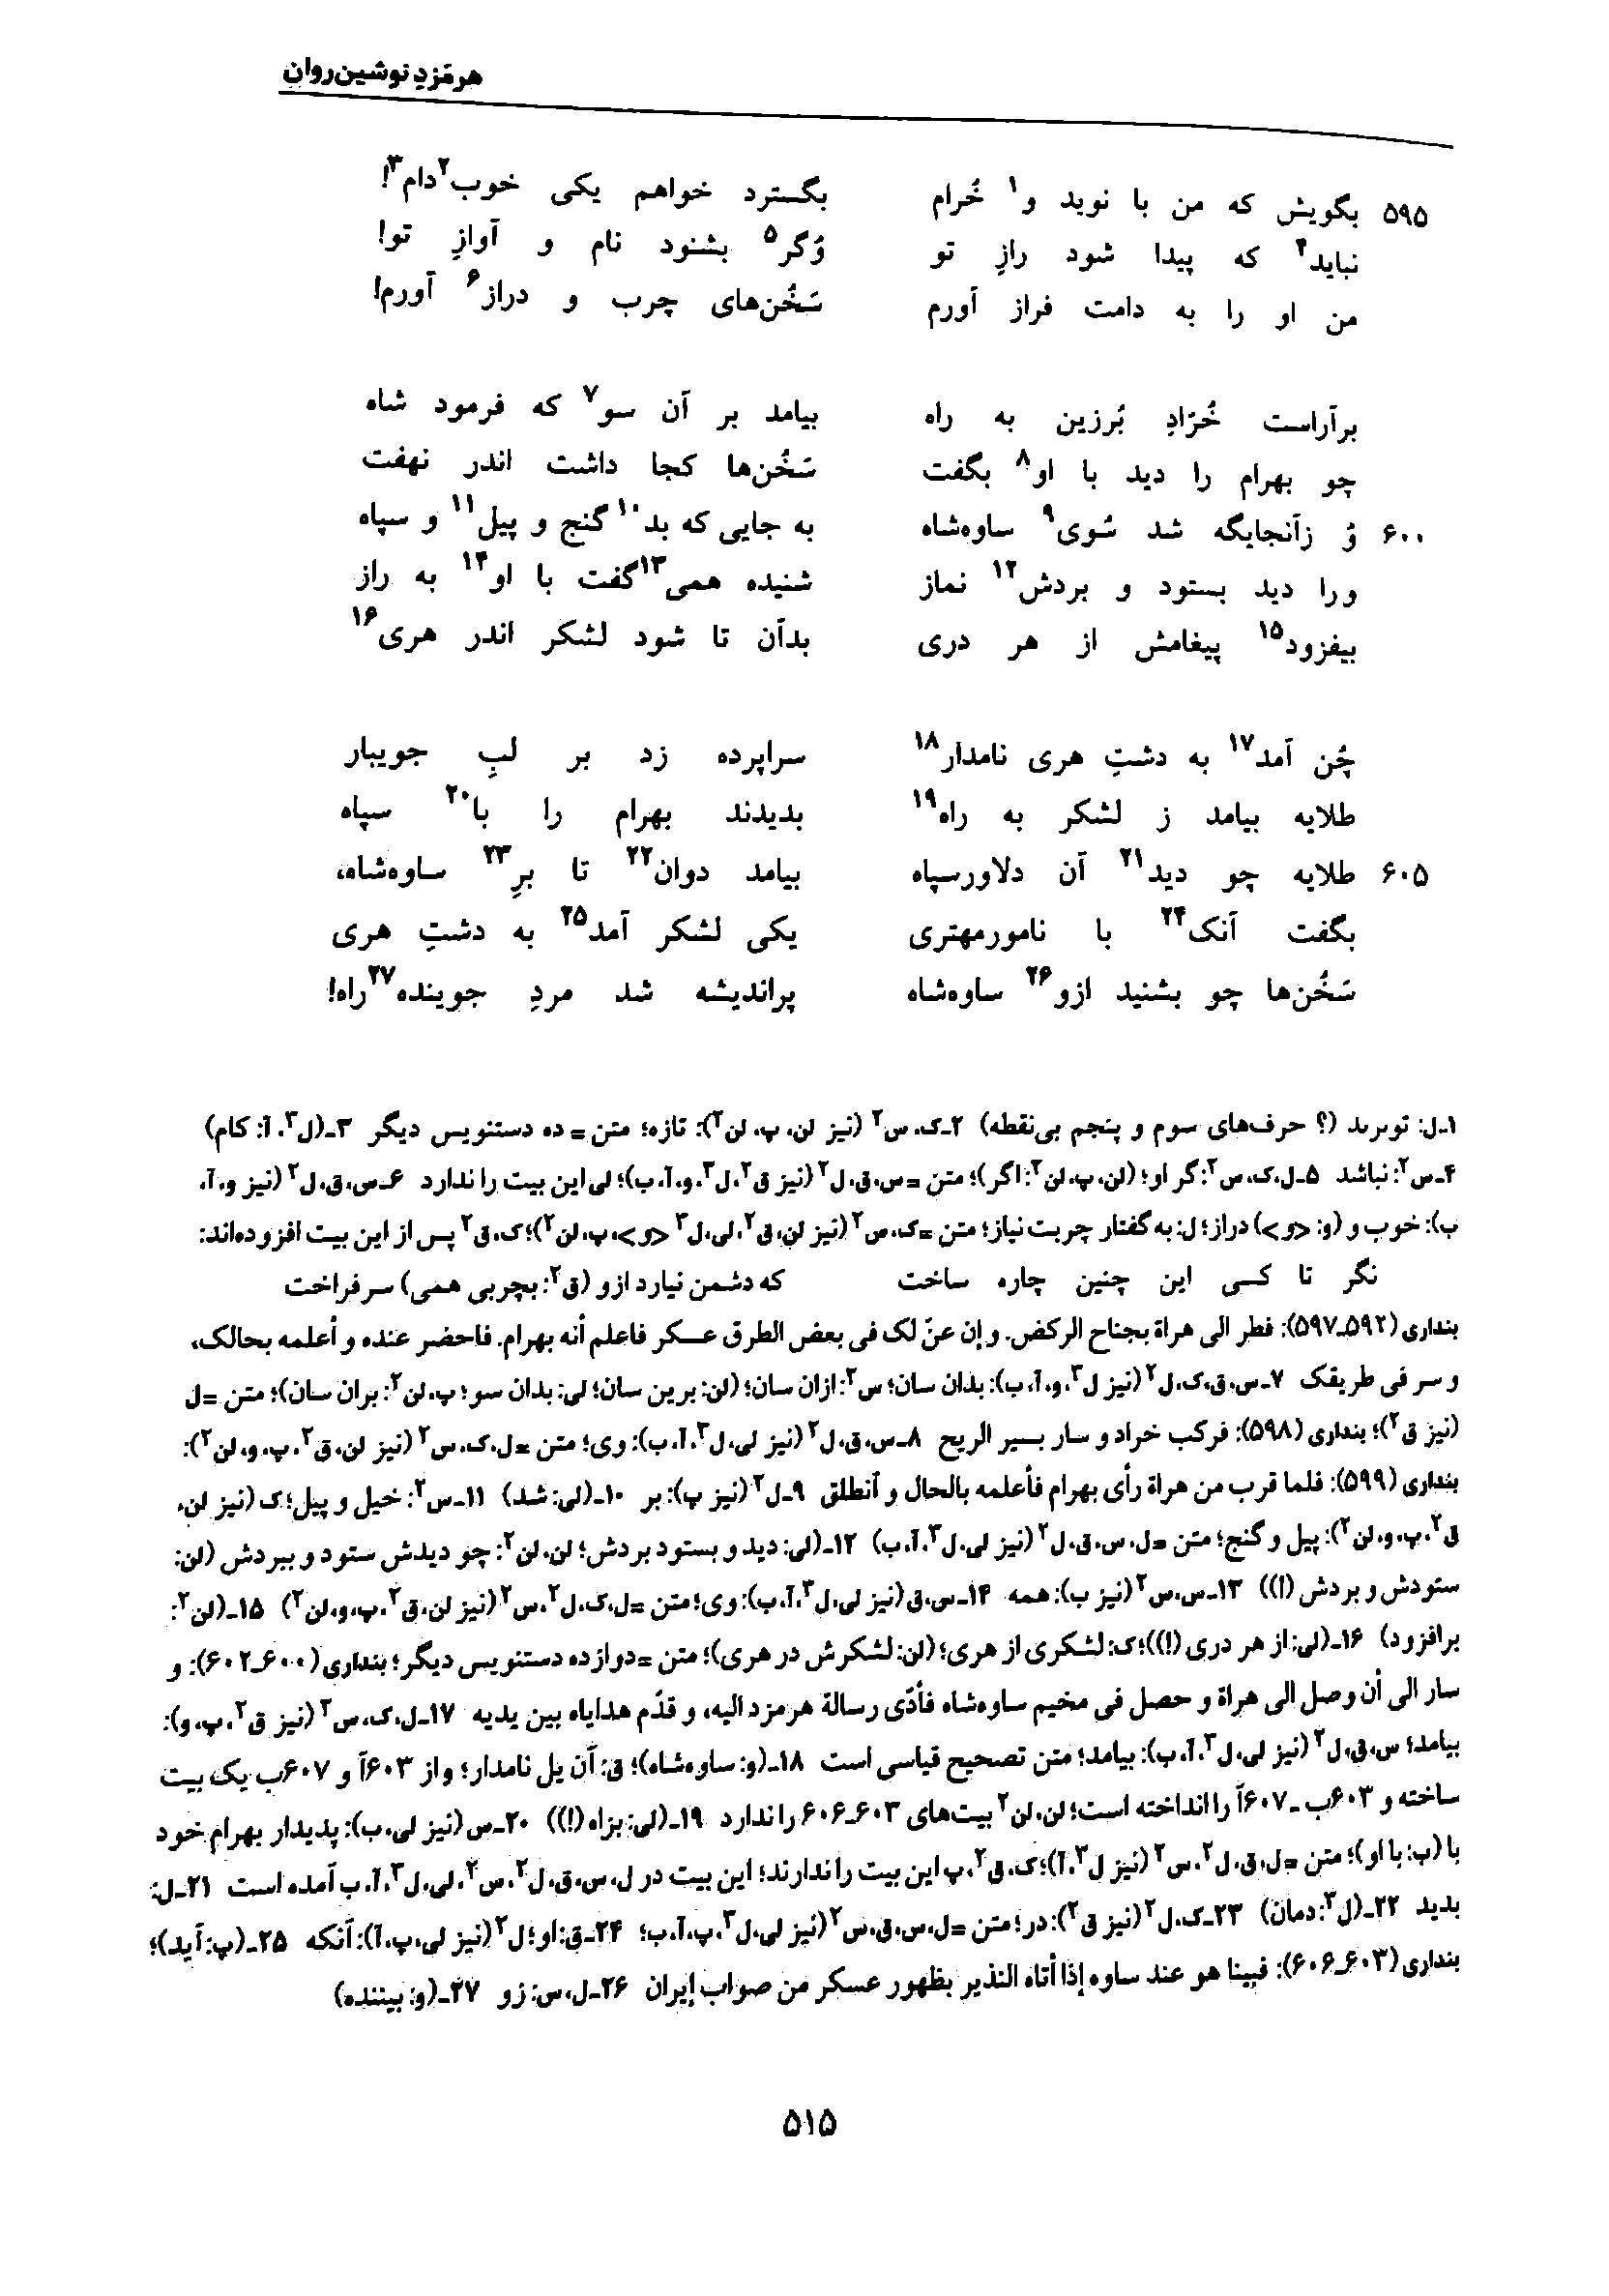 هرمَزدِ نوشین‌روان
۵۹۵ بگویش که من با نوید و۱ خُرام بگسترد خواهم یکی خوب۲ دام۳!
نباید۴ که پیدا شود رازِ تو وُگر۵ بشنود نام و آوازِ تو!
من او را به دامت فراز آورم سَخُن‌های چرب و دراز۶ آورم!
برآراست خُرّادِ بُرزین به راه بیامد بر آن سو۷ که فرمود شاه
چو بهرام را دید با او۸ بگفت سَخُن‌ها کجا داشت اندر نهفت
۶۰۰ وُ زآنجایگه شد سُوی۹ ساوه‌شاه به جایی که بد۱۰ گنج و پیل۱۱ و سپاه
ورا دید بستود و بردش۱۲ نماز شنیده همی۱۳ گفت با او۱۴ به راز
بیفزود۱۵ پیغامش از هر دری بدآن تا شود لشکر اندر هری۱۶
چُن آمد۱۷ به دشتِ هری نامدار۱۸ سراپرده زد بر لبِ جویبار
طلایه بیامد ز لشکر به راه۱۹ بدیدند بهرام را با۲۰ سپاه
۶۰۵ طلایه چو دید۲۱ آن دلاورسپاه بیامد دوان۲۲ تا برِ۲۳ ساوه‌شاه،
بگفت آنک۲۴ با نامورمهتری یکی لشکر آمد۲۵ به دشتِ هری
سَخُن‌ها چو بشنید ازو۲۶ ساوه‌شاه پراندیشه شد مردِ جوینده۲۷ راه!
۱ـ ل: توىرىد (؟ حرف‌های سوم و پنجم بی‌نقطه) ۲ـ ک، س۲ (نیز لن، پ، لن۲): تازه؛ متن = ده دستنویس دیگر ۳ـ (ل۳، آ: کام)
۴ـ س۲: نباشد ۵ـ ل، ک، س۲: گر او؛ (لن، پ، لن۲: اگر)؛ متن = س، ق، ل۲ (نیز ق۲، ل۳، و، آ، ب)؛ لی این بیت را ندارد ۶ـ س، ق، ل۲ (نیز و، آ،
ب): خوب و (و: <و>) دراز؛ ل: به گفتار چربت نیاز؛ متن = ک، س۲ (نیز لن، ق۲، لی، ل۳ <و>، پ، لن۲)؛ ک، ق۲ پس از این بیت افزوده‌اند:
نگر تا کسی این چنین چاره ساخت که دشمن نیارد ازو (ق۲: بچربی همی) سرفراخت
بنداری (۵۹۲ـ۵۹۷): فطر الی هراة بجناح الرکض. و إن عنّ لک فی بعض الطرق عسکر فاعلم أنه بهرام. فاحضر عنده و أعلمه بحالک،
و سر فی طریقک ۷ـ س، ق، ک، ل۲ (نیز ل۳، و، آ، ب): بدان سان؛ س۲: ازان سان؛ (لن: برین سان؛ لی: بدان سو؛ پ، لن۲: بران سان)؛ متن = ل
(نیز ق۲)؛ بنداری (۵۹۸): فرکب خراد و سار بسیر الریح ۸ـ س، ق، ل۲ (نیز لی، ل۳، آ، ب): وی؛ متن = ل، ک، س۲ (نیز لن، ق۲، پ، و، لن۲):
بنداری (۵۹۹): فلما قرب من هراة رأی بهرام فأعلمه بالحال و أنطلق ۹ـ ل۲ (نیز پ): بر ۱۰ـ (لی: شد) ۱۱ـ س۲: خیل و پیل؛ ک (نیز لن،
ق۲، پ، و، لن۲): پیل و گنج؛ متن = ل، س، ق، ل۲ (نیز لی، ل۳، آ، ب) ۱۲ـ (لی: دید و بستود بردش؛ لن، لن۲: چو دیدش ستود و ببردش (لن:
ستودش و بردش (!)) ۱۳ـ س، س۲ (نیز ب): همه ۱۴ـ س، ق (نیز لی، ل۳، آ، ب): وی؛ متن = ل، ک، ل۲، س۲ (نیز لن، ق۲، پ، و، لن۲) ۱۵ـ (لن۲:
برافزود) ۱۶ـ (لی: از هر دری (!))؛ ک: لشکری از هری؛ (لن: لشکرش در هری)؛ متن = دوازده دستنویس دیگر؛ بنداری (۶۰۰ـ۶۰۲): و
سار الی أن وصل الی هراة و حصل فی مخیم ساوه‌شاه فأدّی رسالة هرمزد الیه، و قدّم هدایاه بین یدیه ۱۷ـ ل، ک، س۲ (نیز ق۲، پ، و):
بیامد؛ س، ق، ل۲ (نیز لی، ل۳، آ، ب): بیامد؛ متن تصحیح قیاسی است ۱۸ـ (و: ساوه‌شاه)؛ ق: آن یل نامدار؛ و از ۶۰۳آ و ۶۰۷ب یک بیت
ساخته و ۶۰۳ب ـ ۶۰۷آ را انداخته است؛ لن، لن۲ بیت‌های ۶۰۳ـ۶۰۶ را ندارد ۱۹ـ (لی: بزاه (!)) ۲۰ـ س (نیز لی، ب): پدیدار بهرام خود
با (ب: با او)؛ متن = ل، ق، ل۲، س۲ (نیز ل۳، آ)؛ ک، ق۲، پ این بیت را ندارند؛ این بیت در ل، س، ق، ل۲، س۲، لی، ل۳، آ، ب آمده است ۲۱ـ ل:
بدید ۲۲ـ (ل۳: دمان) ۲۳ـ ک، ل۲ (نیز ق۲): در؛ متن = ل، س، ق، س۲ (نیز لی، ل۳، پ، آ، ب؛ ۲۴ـ ق: او؛ ل۲ (نیز لی، پ، آ): آنکه ۲۵ـ (پ: آید)؛
بنداری (۶۰۳ـ۶۰۶): فبینا هو عند ساوه إذا أتاه النذیر بظهور عسکر من صواب إیران ۲۶ـ ل، س: زو ۲۷ـ (و: بیننده)
۵۱۵